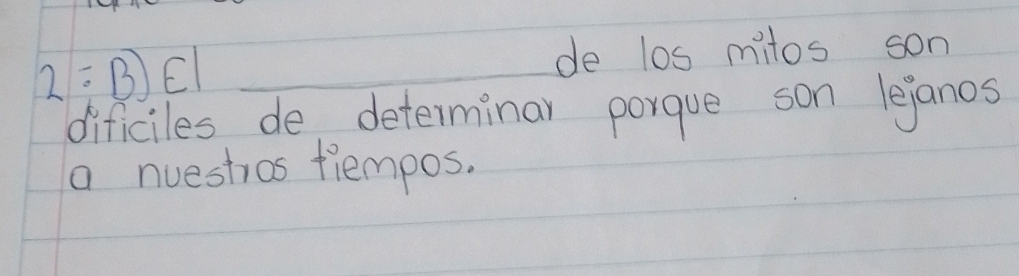 2= B) El ____________ de los mitos son
dificiles de determinar porque son lejanos
a nuestros tiempos.